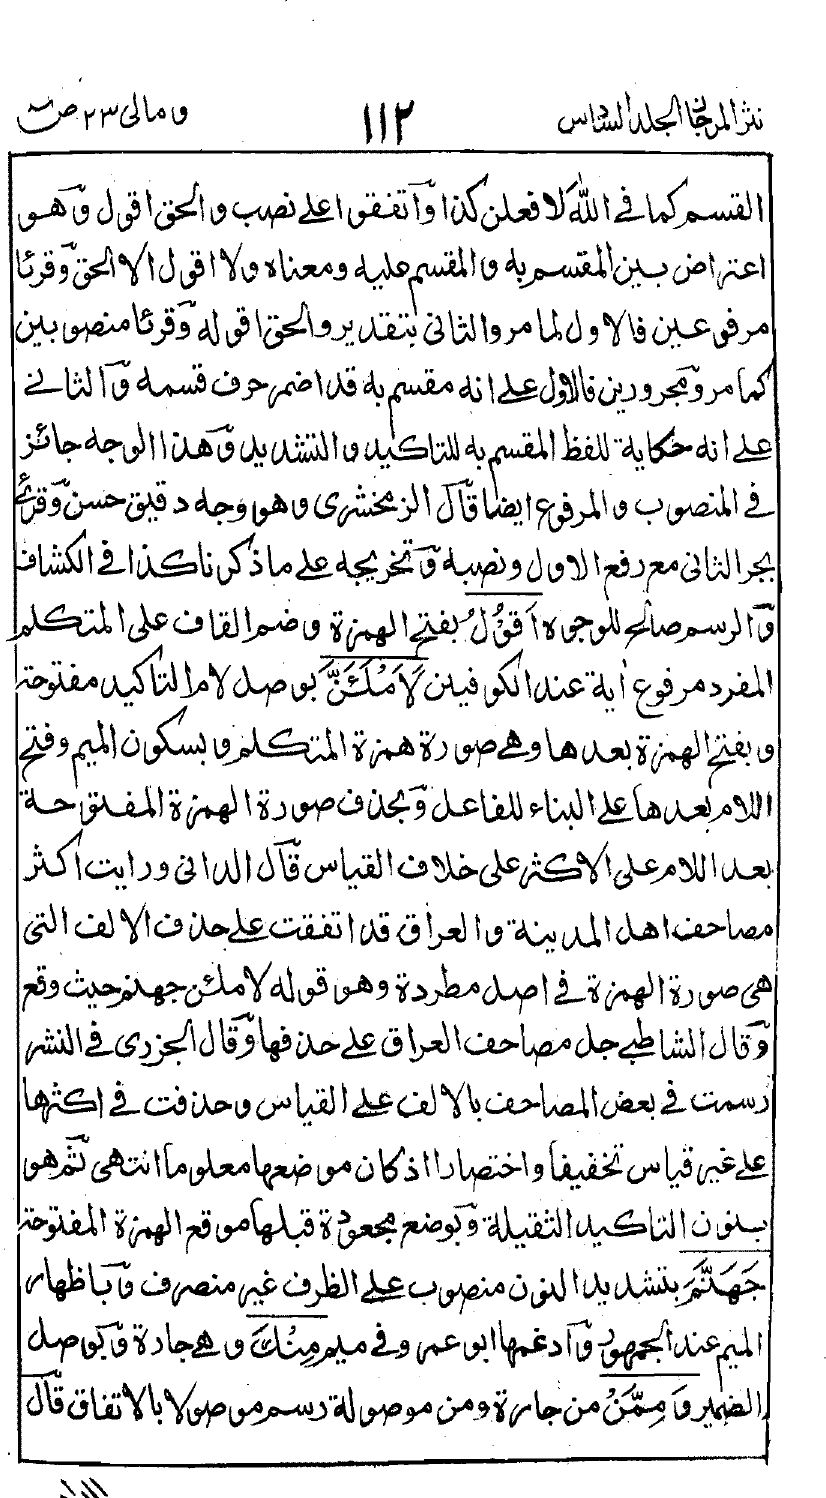 نثر المرجان الجلد السادس ١١٢ و مالى ٢٣ ص
القسم كما فى اللّه لافعلن كذا واتفقوا على نصب والحق اقول وهو
اعتراض بين المقسم به والمقسم عليه ومعناه ولا اقول الا الحق وقرئا
مرفوعين فالاول لما مر والثانى بتقدير والحق اقوله وقرئا منصوبين
كما مر ومجرورين فالاول على انه مقسم به قد اضمر حرف قسمه والثانى
على انه حكاية للفظ المقسم به للتاكيد والتشديد وهذا الوجه جائز
فى المنصوب والمرفوع ايضا قال الزمخشرى وهو وجه دقيق حسن وقرئ
بجر الثانى مع رفع الاول ونصبه وتخريجه على ما ذكرنا كذا فى الكشاف
والرسم صالح للوجوه اَقُوْلُ بفتح الهمزة وضم القاف على المتكلم
المفرد مرفوع اٰية عند الكوفيين لَاَمْلَئَنَّ بوصل لام التاكيد مفتوحة
وبفتح الهمزة بعدها وهى صورة همزة المتكلم وبسكون الميم وفتح
اللام بعدها على البناء للفاعل وبحذف صورة الهمزة المفتوحة
بعد اللام على الاكثر على خلاف القياس قال الدانى ورايت اكثر
مصاحف اهل المدينة والعراق قد اتفقت على حذف الالف التى
هى صورة الهمزة فى اصل مطردة وهو قوله لاملئن جهنم حيث وقع
وقال الشاطبى جل مصاحف العراق على حذفها وقال الجزرى فى النشر
رسمت فى بعض المصاحف بالالف على القياس وحذفت فى اكثرها
على غير قياس تخفيفا واختصارا اذ كان موضعها معلوما انتهى ثم هو
بنون التاكيد الثقيلة وبوضع مجعودة قبلها موقع الهمزة المفتوحة
جَهَنَّمَ بتشديد النون منصوب على الظرف غير منصرف وباظهار
الميم عند الجمهور وادغمها ابو عمرو فى ميم مِنْكَ وهى جارة وبوصل
الضمير وَمِمَّنْ من جارة ومن موصولة رسم موصولا بالاتفاق قال